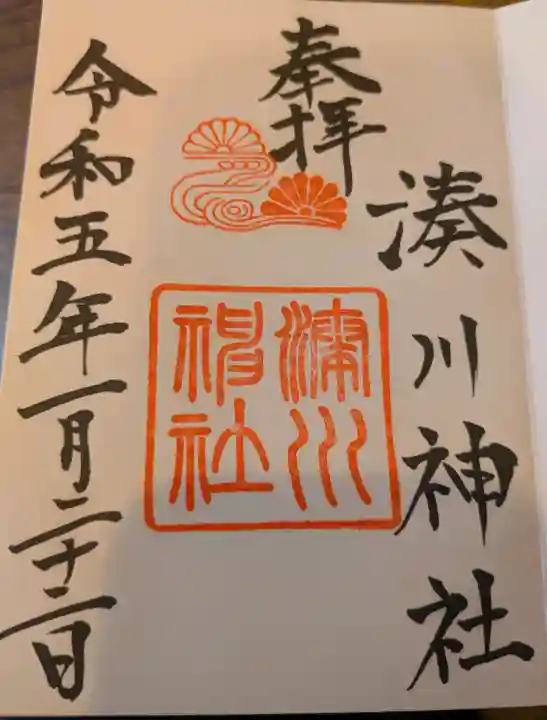 奉拝
湊川神社
湊川神社
令和五年一月二十二日